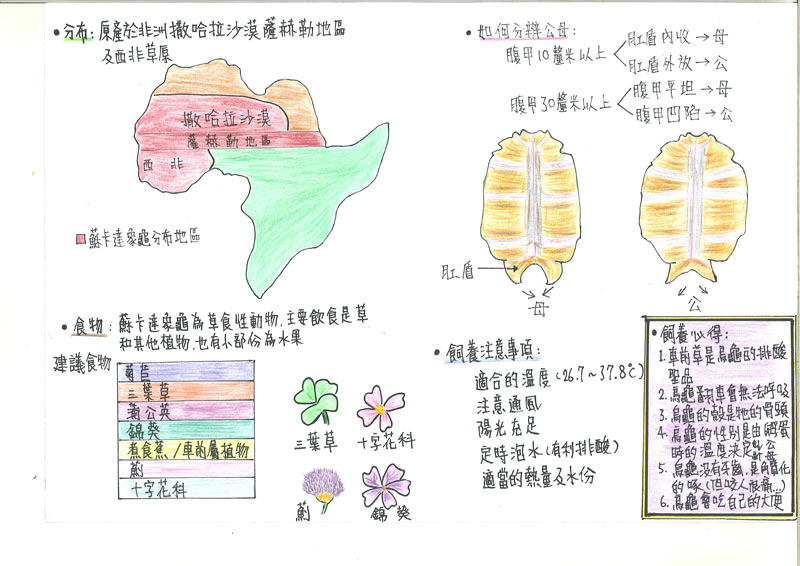 • 分布: 原產於非洲撒哈拉沙漠薩赫勒地區
及西非草原
撒哈拉沙漠
薩赫勒地區
西非
蘇卡達象龜分布地區
• 食物: 蘇卡達象龜為草食性動物,主要飲食是草
和其他植物,也有小部份為水果
建議食物
菊苣
三葉草
蒲公英
錦葵
煮食蕉/車前屬植物
薊
十字花科
三葉草
十字花科
薊
錦葵
• 如何分辨公母:
腹甲10釐米以上
肛盾內收→母
肛盾外放→公
腹甲30釐米以上
腹甲平坦→母
腹甲凹陷→公
肛盾
母
公
• 飼養注意事項:
適合的溫度(26.7~37.8℃)
注意通風
陽光充足
定時泡水(有利排酸)
適當的熱量及水份
• 飼養心得:
1. 車前草是烏龜的排酸
聖品
2. 烏龜翻車會無法呼吸
3. 烏龜的殼是牠的骨頭
4. 烏龜的性別是由孵蛋
時的溫度決定
公
母
5. 烏龜沒有牙齒,是角質化
的喙(但咬人很痛...)
6. 烏龜會吃自己的大便